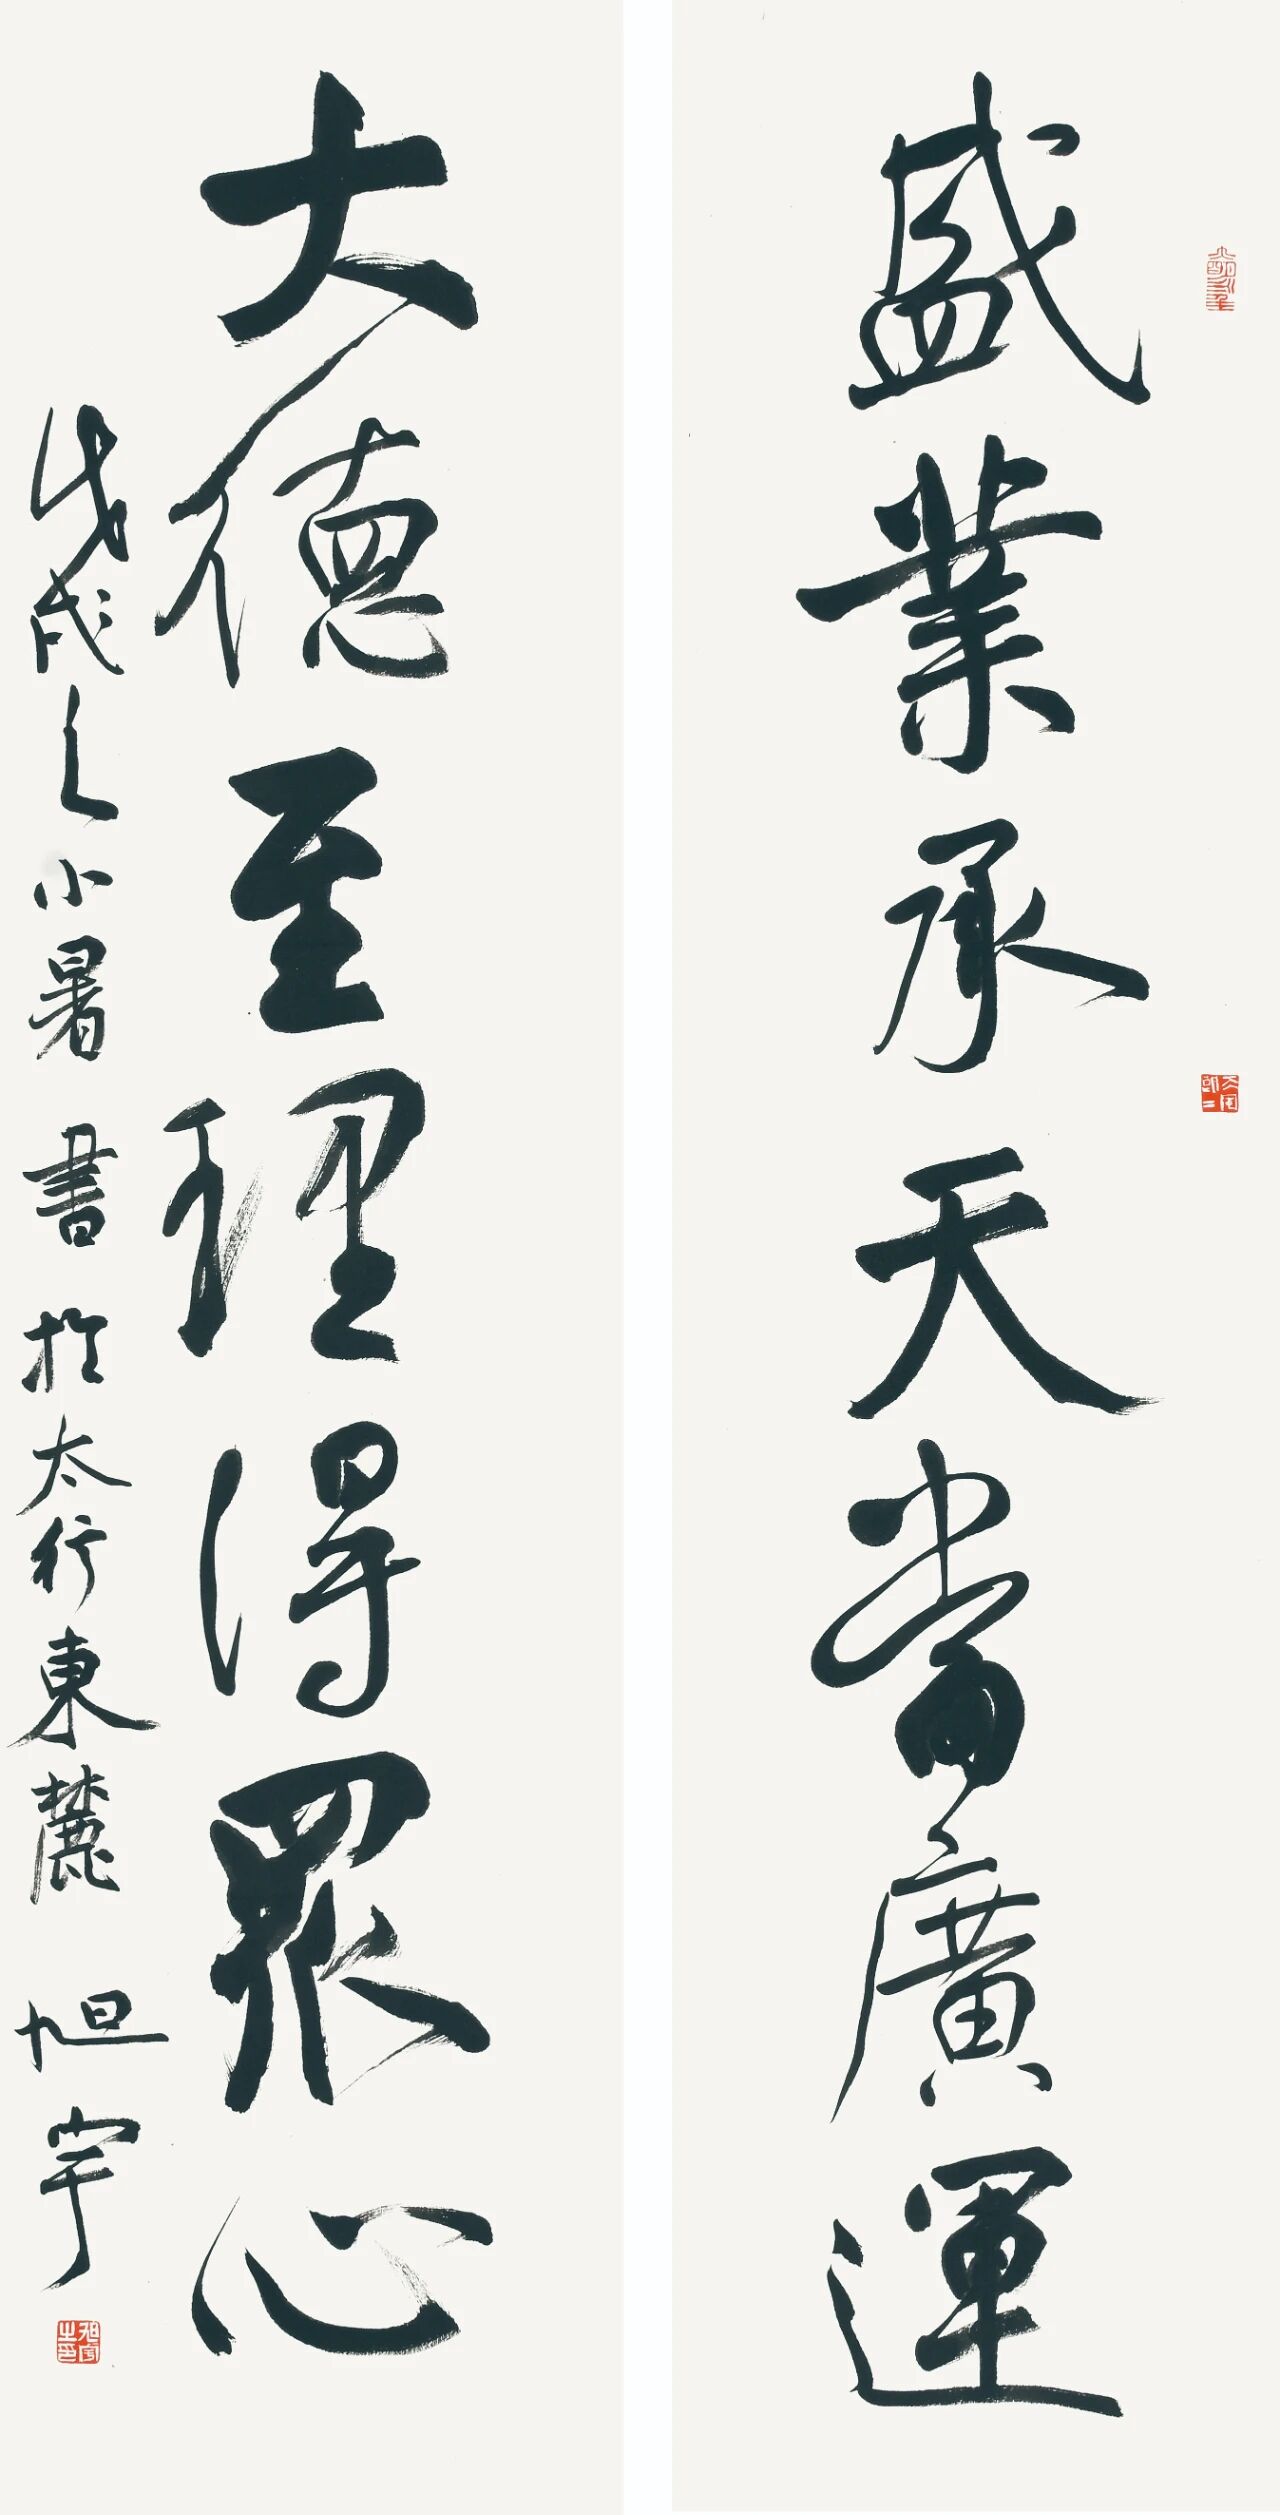 盛業承天當廣運
大德至理得眾心
戊戌之小暑書於太行東麓旭宇
旭宇之印